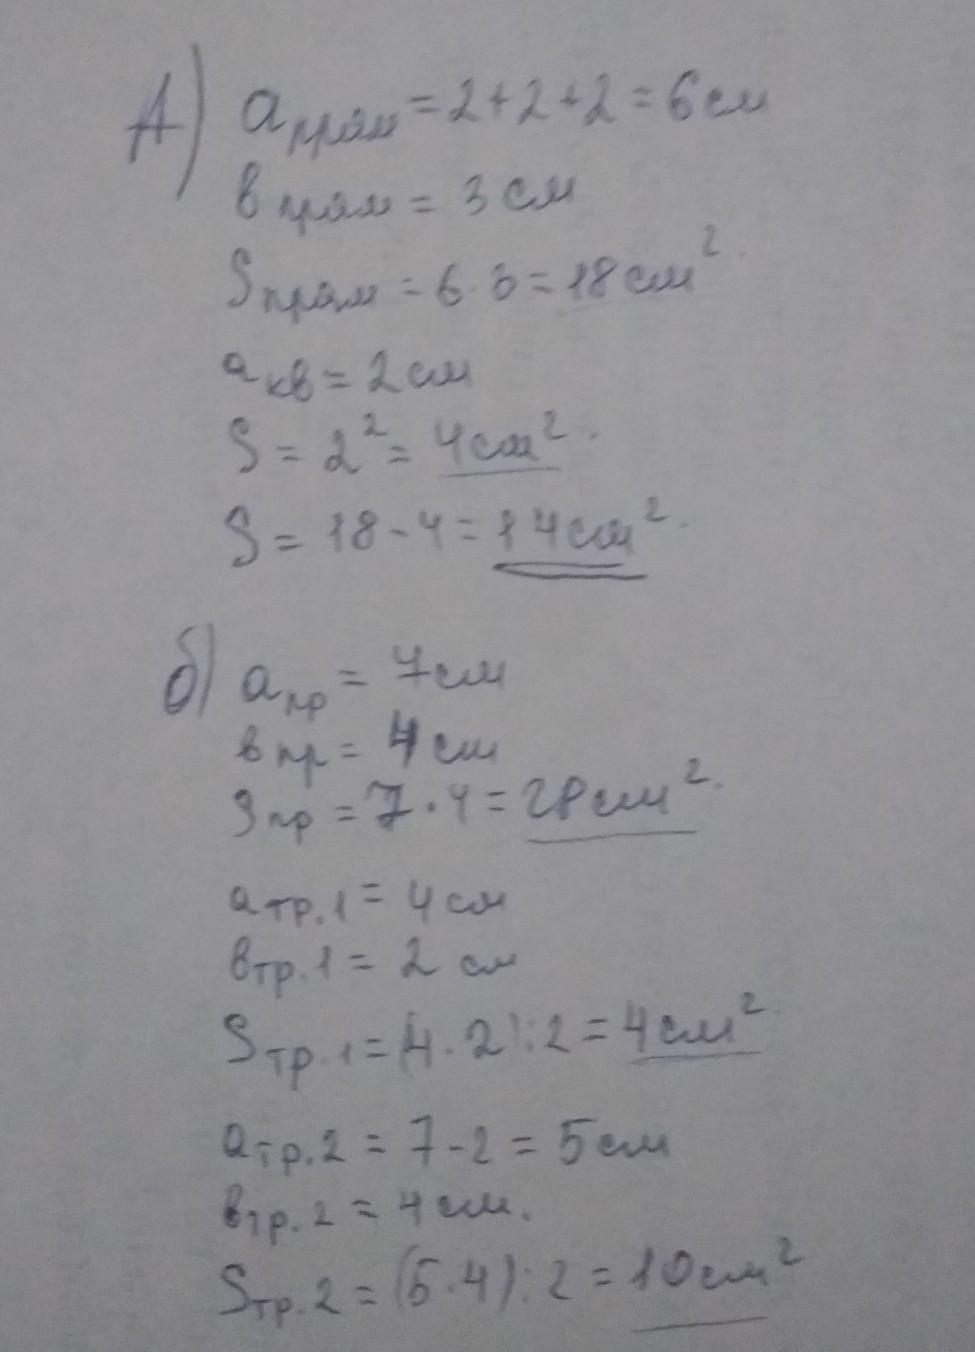 А) a прям = 2+2+2 = 6 см
в прям = 3 см
S прям = 6·3 = 18 см²
а кв = 2 см
S = 2² = 4 см²
S = 18 - 4 = 14 см²
б) а пр = 7 см
в пр = 4 см
S пр = 7·4 = 28 см²
а тр.1 = 4 см
в тр.1 = 2 см
S тр.1 = (4·2):2 = 4 см²
а тр.2 = 7-2 = 5 см
в тр.2 = 4 см.
S тр.2 = (5·4):2 = 10 см²